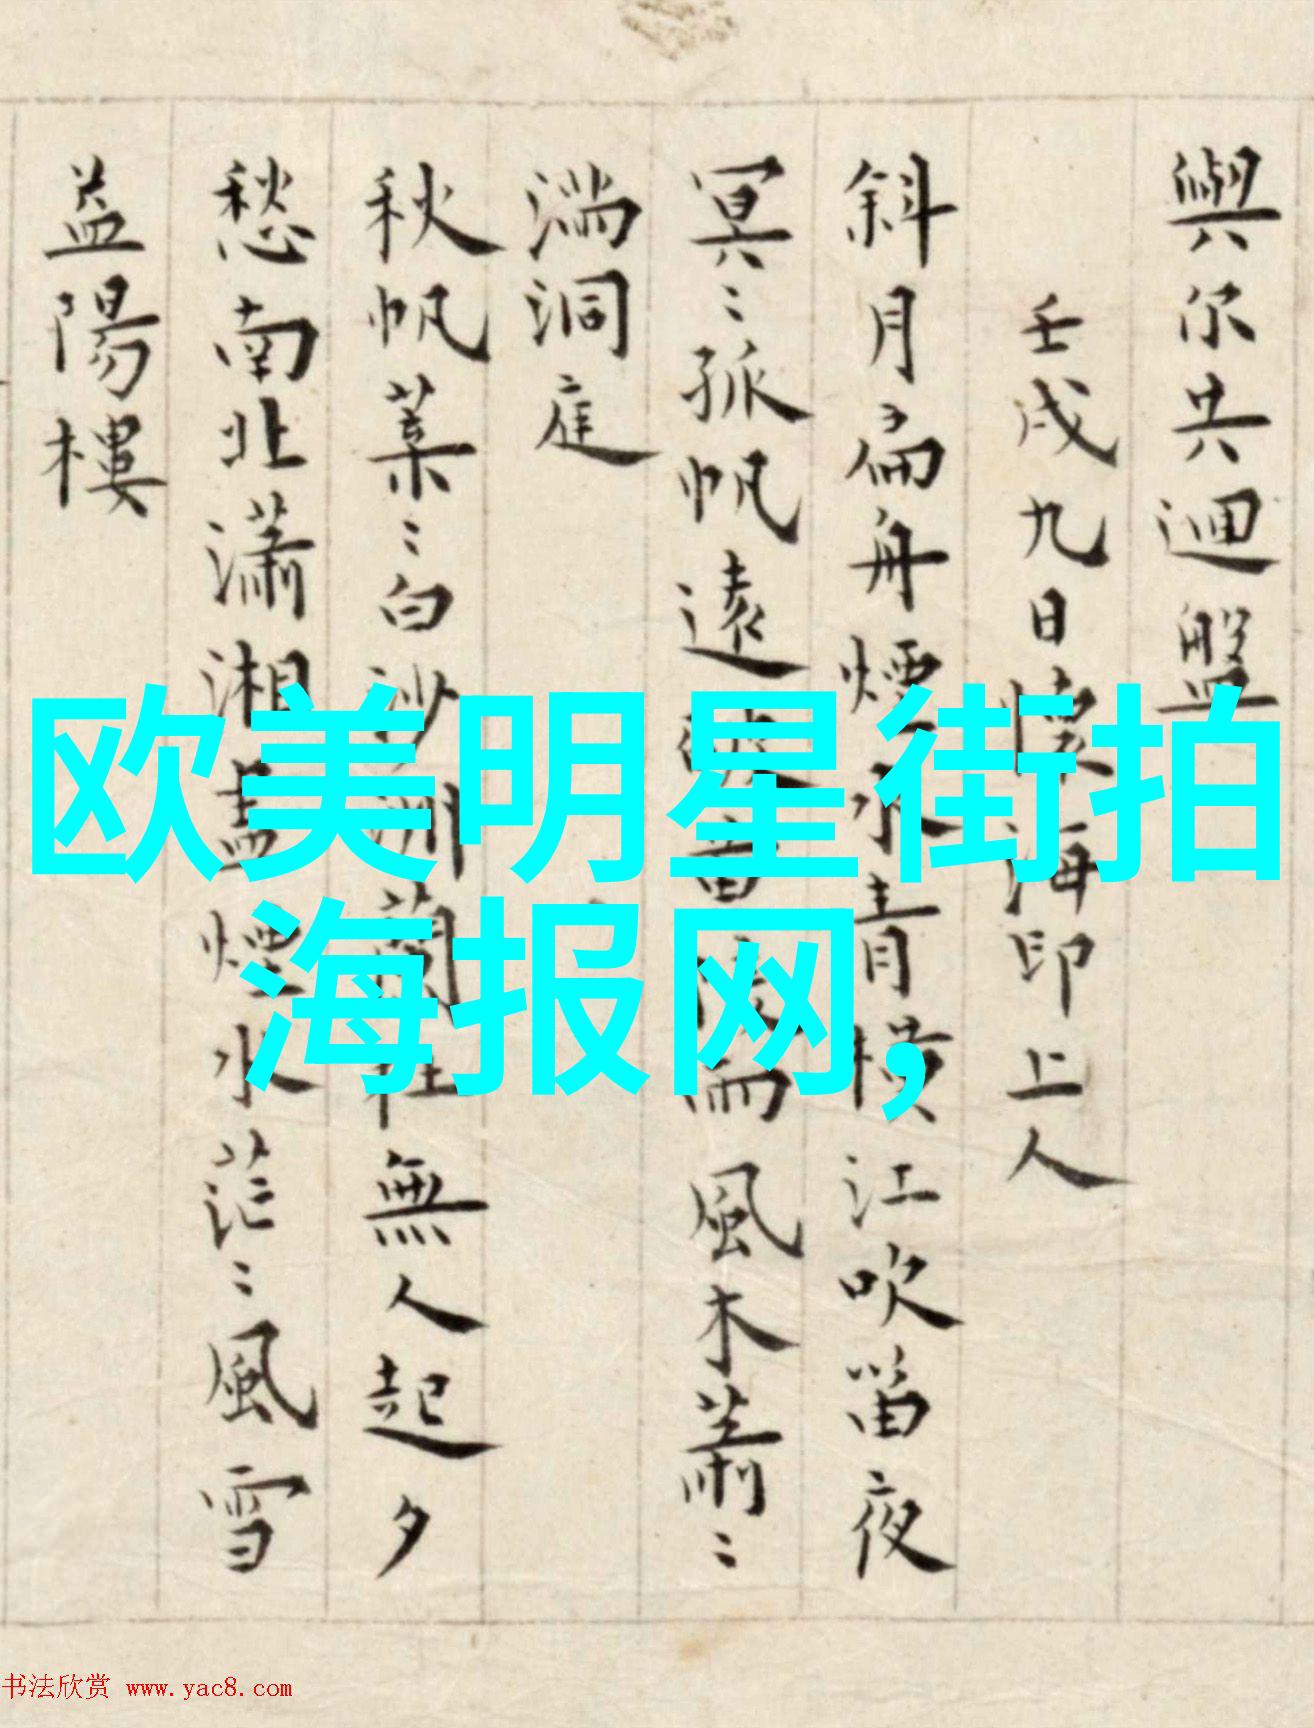 與尔共迴盤
壬戌九日懷海印上人
斜月扁舟煙水青橫江吹笛夜
冥〻孤帆遠 風木蕭〻
滿洞庭
秋帆葉〻白沙洲蘭 無人起夕
愁南北瀟湘盡煙水茫〻風雪
益陽樓
欧美明星街拍
海报网,
书法欣赏 www.yac8.com